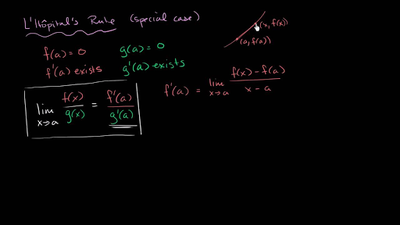 L'Hôpital's Rule (special case)
f(a) = 0 g(a) = 0
f'(a) exists g'(a) exists
lim x→a f(x)/g(x) = f'(a)/g'(a)
(x, f(x))
(a, f(a))
f'(a) = lim x→a (f(x) - f(a))/(x - a)